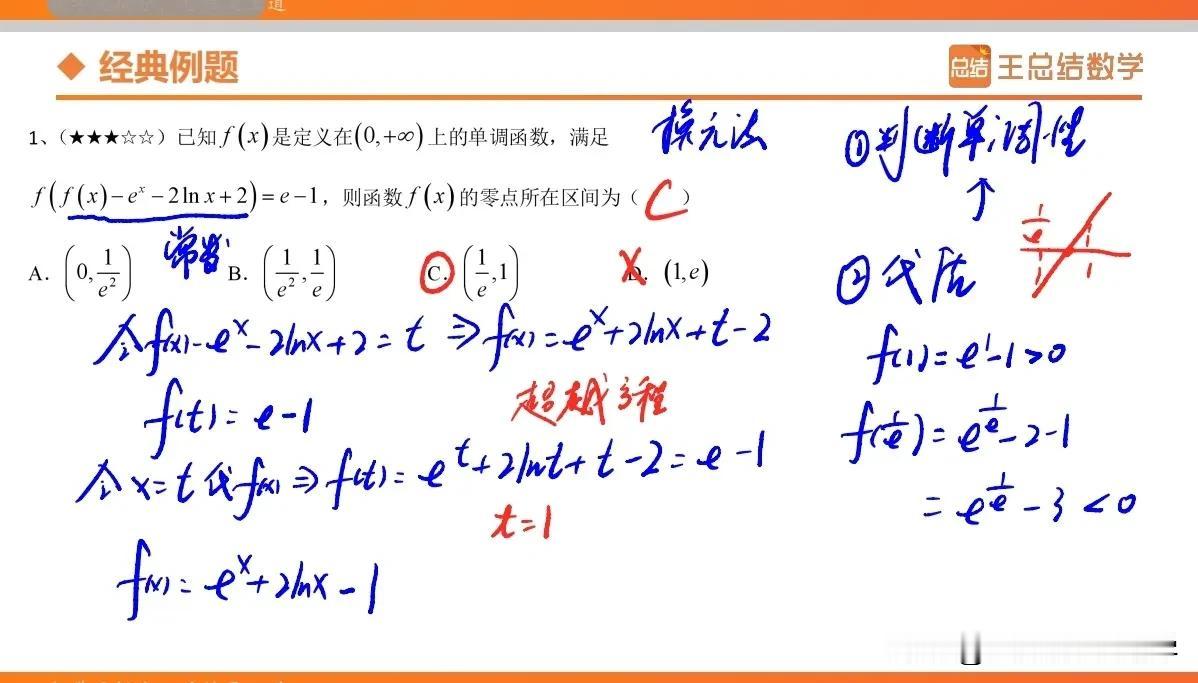 道
经典例题
总结 王总结数学
1、(★★★☆☆) 已知 f(x) 是定义在(0,+∞) 上的单调函数，满足
f(f(x)−e^x−2ln x+2)=e−1，则函数 f(x) 的零点所在区间为（ C ）
A. (0, 1/e²) B. (1/e², 1/e) C. (1/e, 1) D. (1, e)
换元法
常数
令f(x)-e^x-2lnx+2=t ⇒ f(x)=e^x+2lnx+t-2
f(t)=e-1
超越方程
令x=t代f(x) ⇒ f(t)=e^t+2lnt+t-2=e-1
t=1
f(x)=e^x+2lnx-1
①判断单调性
↑
1/e 1
②代点
f(1)=e^1-1>0
f(1/e)=e^(1/e)-2-1
=e^(1/e)-3<0